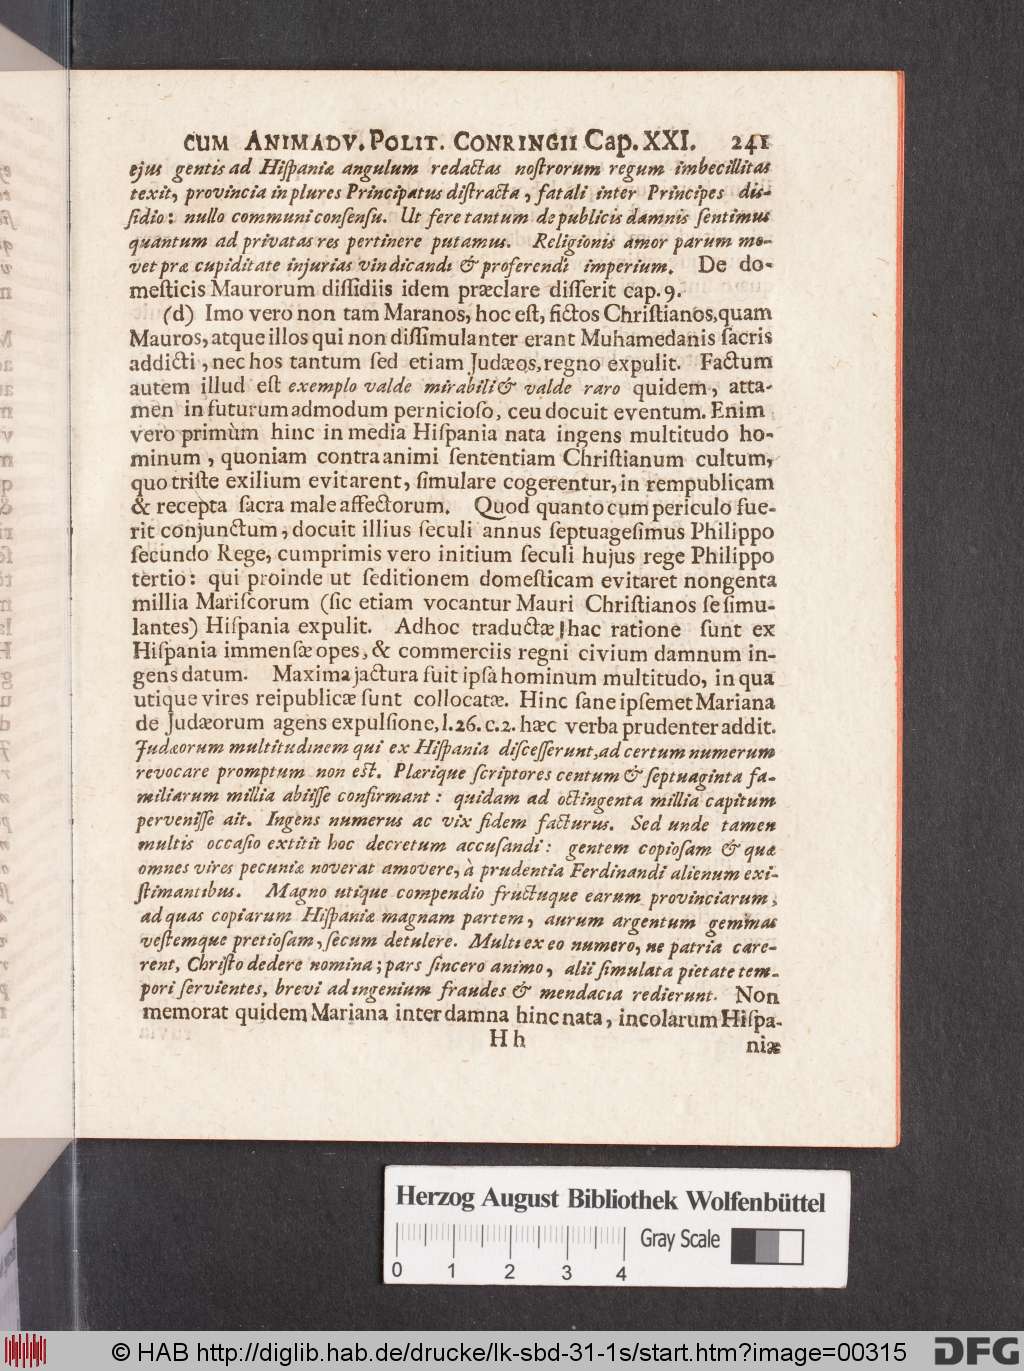 CUM ANIMADV. POLIT. CONRINGII Cap. XXI. 241
ejus gentis ad Hiſpaniæ angulum redactas noſtrorum regum imbecillitas
texit, provincia in plures Principatus diſtracta, fatali inter Principes diſ-
ſidio: nullo communi conſenſu. Ut fere tantum de publicis damnis ſentimus
quantum ad privatas res pertinere putamus. Religionis amor parum mo-
vet præ cupiditate injurias vindicandi & proferendi imperium. De do-
meſticis Maurorum diſſidiis idem præclare diſſerit cap. 9.
(d) Imo vero non tam Maranos, hoc eſt, fictos Chriſtianos, quam
Mauros, atque illos qui non diſſimulanter erant Muhamedanis ſacris
addicti, nec hos tantum ſed etiam Judæos, regno expulit. Factum
autem illud eſt exemplo valde mirabili & valde raro quidem, atta-
men in futurum admodum pernicioſo, ceu docuit eventum. Enim
vero primùm hinc in media Hiſpania nata ingens multitudo ho-
minum, quoniam contra animi ſententiam Chriſtianum cultum,
quo triſte exilium evitarent, ſimulare cogerentur, in rempublicam
& recepta ſacra male affectorum. Quod quanto cum periculo fue-
rit conjunctum, docuit illius ſeculi annus ſeptuageſimus Philippo
ſecundo Rege, cumprimis vero initium ſeculi hujus rege Philippo
tertio: qui proinde ut ſeditionem domeſticam evitaret nongenta
millia Mariſcorum (ſic etiam vocantur Mauri Chriſtianos ſe ſimu-
lantes) Hiſpania expulit. Adhoc traductæ hac ratione ſunt ex
Hiſpania immenſæ opes, & commerciis regni civium damnum in-
gens datum. Maxima jactura fuit ipſa hominum multitudo, in qua
utique vires reipublicæ ſunt collocatæ. Hinc ſane ipſemet Mariana
de Judæorum agens expulſione, l. 26. c. 2. hæc verba prudenter addit.
Judæorum multitudinem qui ex Hiſpania diſceſſerunt, ad certum numerum
revocare promptum non eſt. Plærique ſcriptores centum & ſeptuaginta fa-
miliarum millia abiiſſe confirmant: quidam ad octingenta millia capitum
perveniſſe ait. Ingens numerus ac vix fidem facturus. Sed unde tamen
multis occaſio extitit hoc decretum accuſandi: gentem copioſam & quæ
omnes vires pecuniæ noverat amovere, à prudentia Ferdinandi alienum exi-
ſtimantibus. Magno utique compendio fructuque earum provinciarum,
ad quas copiarum Hiſpaniæ magnam partem, aurum argentum gemmas
veſtemque pretioſam, ſecum detulere. Multi ex eo numero, ne patria care-
rent, Chriſto dedere nomina; pars ſincero animo, alii ſimulata pietate tem-
pori ſervientes, brevi ad ingenium fraudes & mendacia redierunt. Non
memorat quidem Mariana inter damna hinc nata, incolarum Hiſpa-
H h
niæ
Herzog August Bibliothek Wolfenbüttel
Gray Scale
0 1 2 3 4
© HAB http://diglib.hab.de/drucke/lk-sbd-31-1s/start.htm?image=00315
DFG